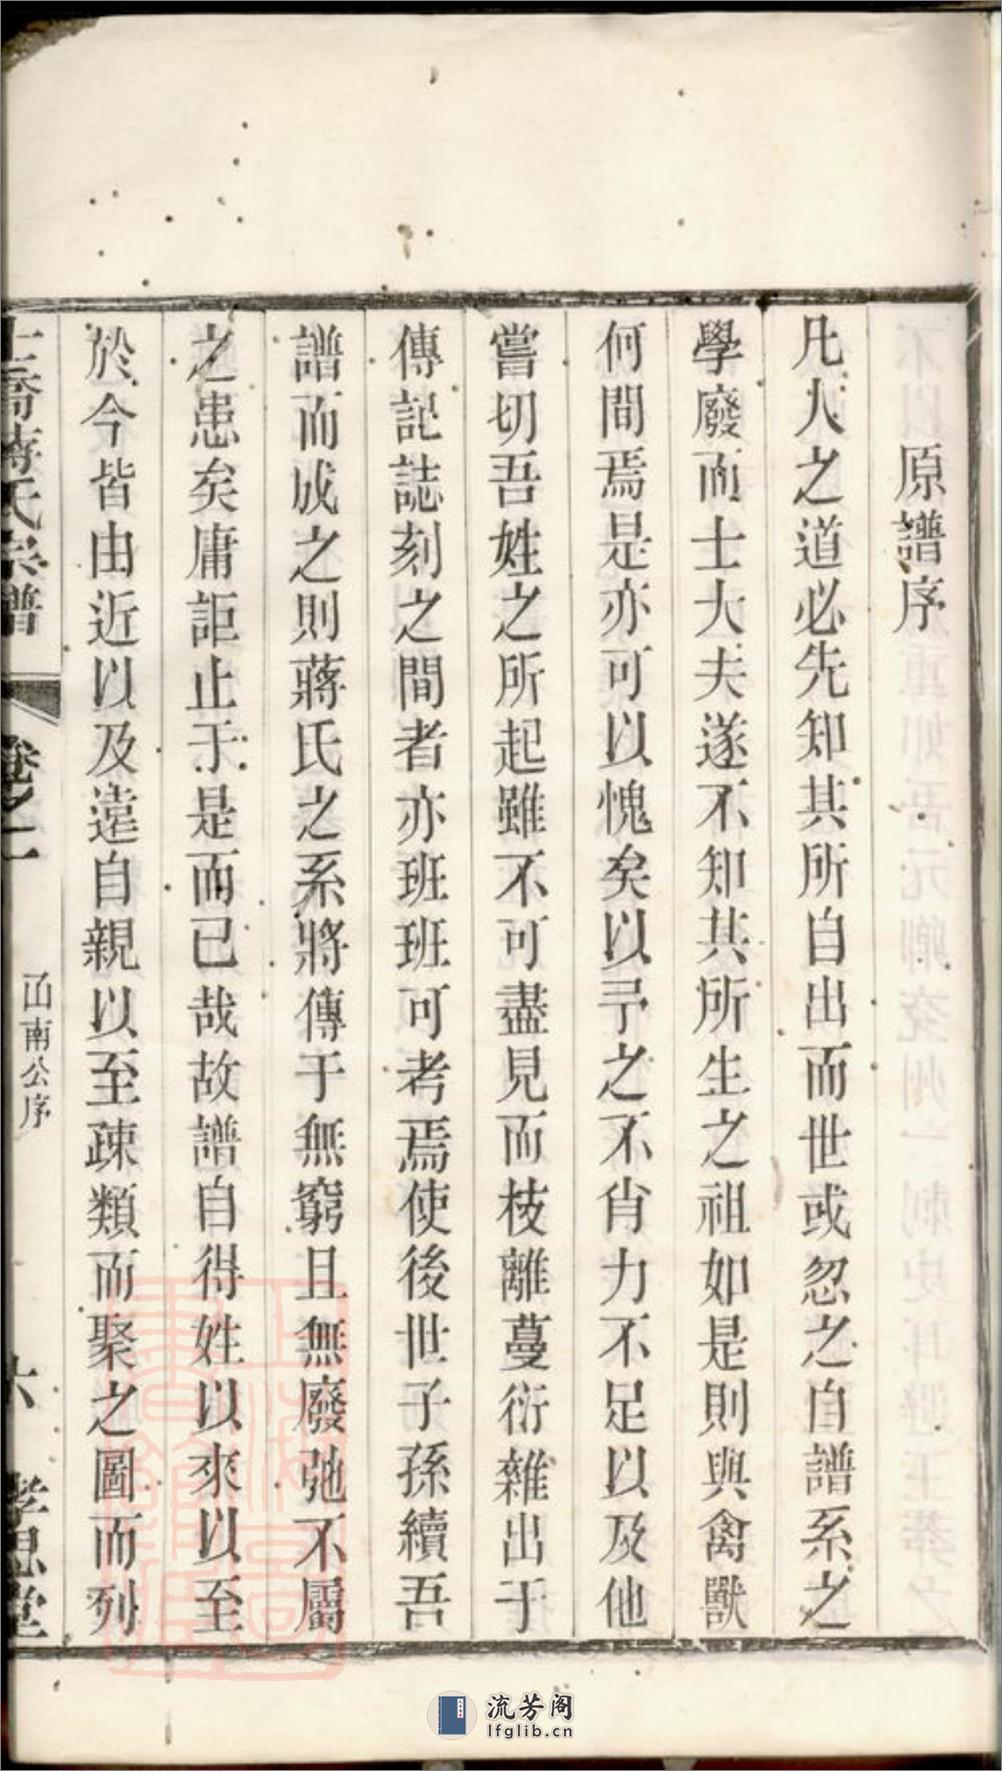 原譜序
凡人之道必先知其所自出而世或忽之自譜系之
學廢而士大夫遂不知其所生之祖如是則與禽獸
何間焉是亦可以愧矣以予之不肖力不足以及他
嘗切吾姓之所起雖不可盡見而枝離蔓衍雜出于
傳記誌刻之間者亦班班可考焉使後世子孫續吾
譜而成之則蔣氏之系將傳于無窮且無廢弛不屬
之患矣庸詎止于是而已哉故譜自得姓以來以至
於今皆由近以及遠自親以至疎類而聚之圖而列
蔣氏宗譜
卷之一
山南公序
六
孝思堂
流芳阁
lfglib.cn